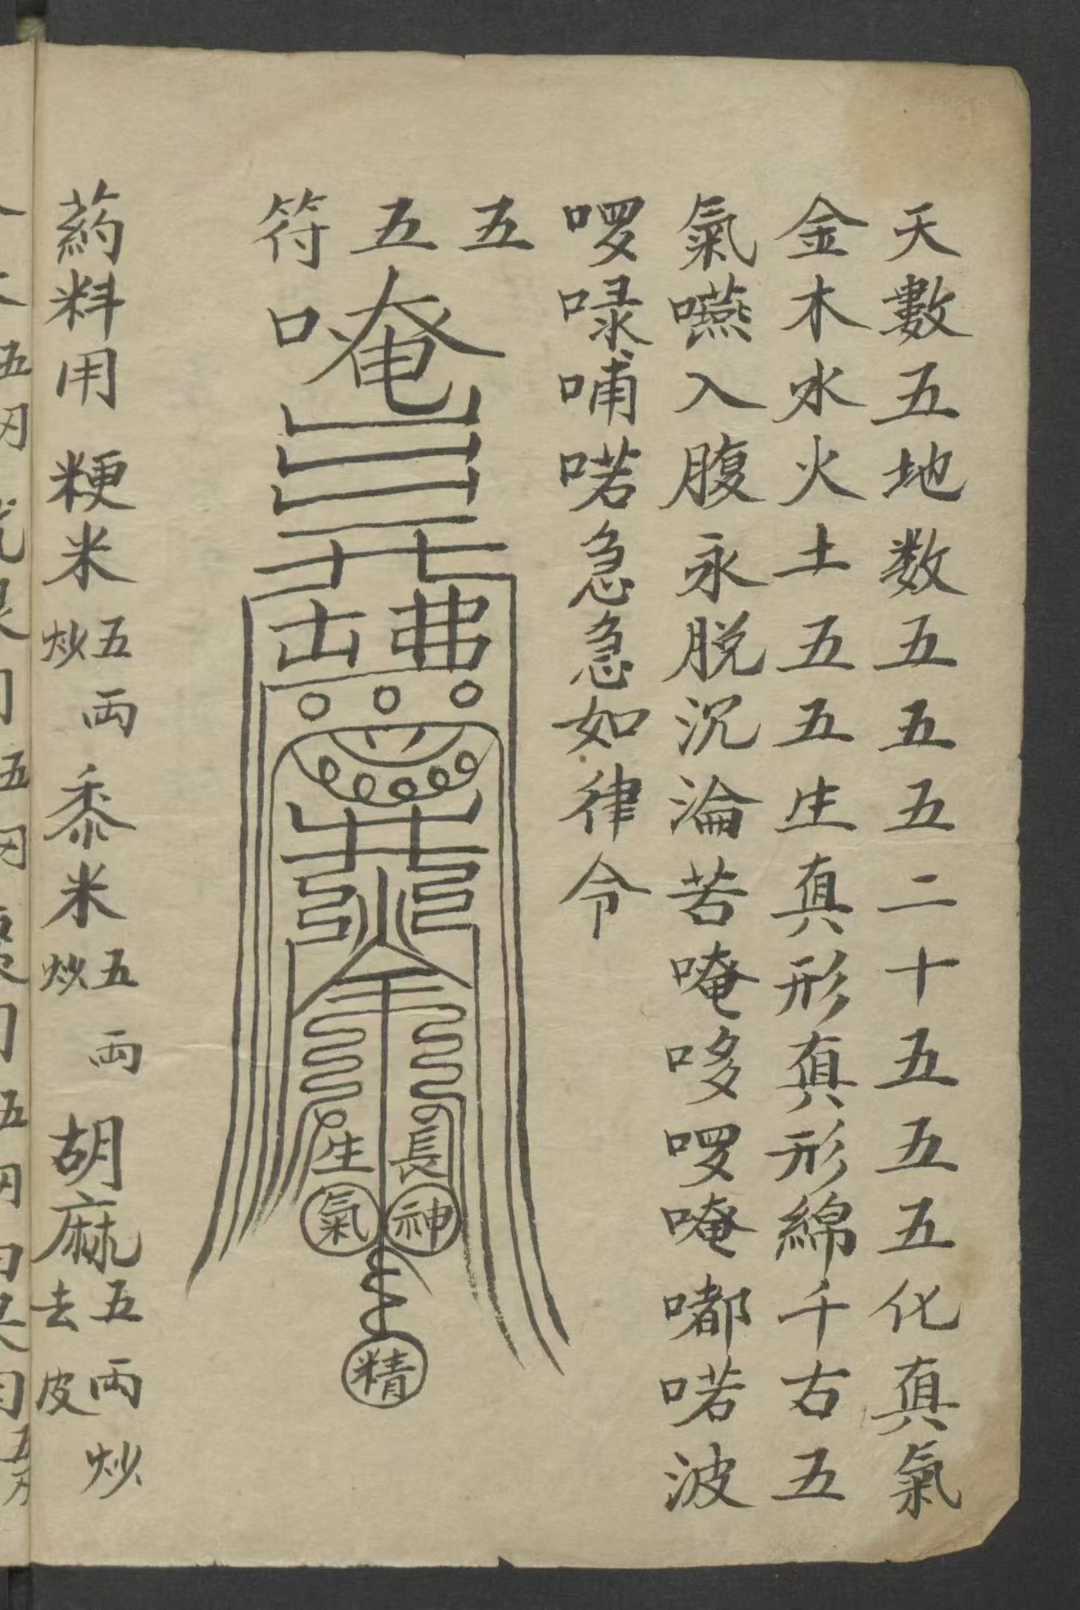 天數五地数五五五二十五五五化真氣
金木水火土五五生真形真形綿千右五
氣嚥入腹永脱沉淪苦唵哆啰唵嘟喏波
啰㖨哺喏急急如律令
五
五
符
唵
弗
長生
神氣
精
葯料用 粳米五両炒 黍米五両炒 胡麻五両炒去皮